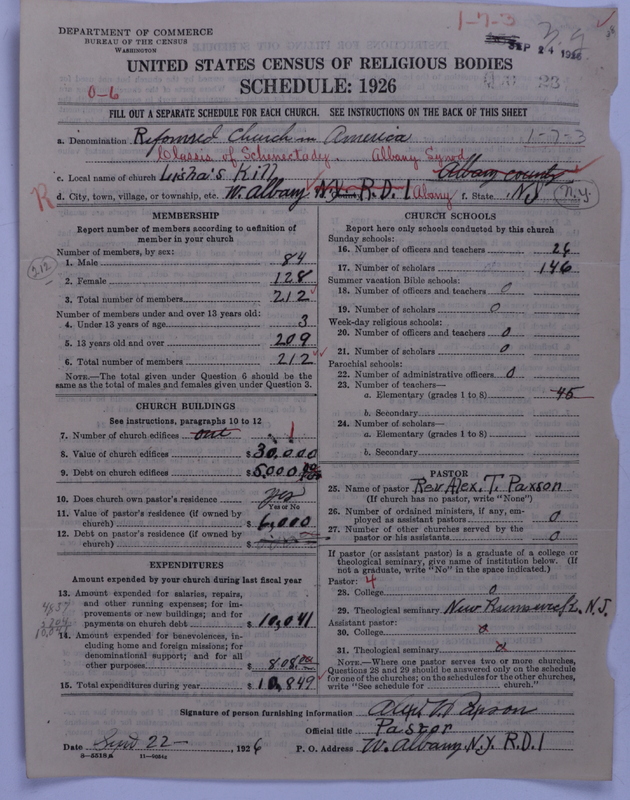 1-7-3
N.Y.
28
DEPARTMENT OF COMMERCE
BUREAU OF THE CENSUS
WASHINGTON
SEP 24 1926
UNITED STATES CENSUS OF RELIGIOUS BODIES
SCHEDULE: 1926
0-6
FILL OUT A SEPARATE SCHEDULE FOR EACH CHURCH. SEE INSTRUCTIONS ON THE BACK OF THIS SHEET
a. Denomination Reformed Church in America 1-7-3
Classis of Schenectady. Albany Synod
c. Local name of church Lisha's Kill Albany County
R d. City, town, village, or township, etc. W. Albany N.Y. R.D. 1 Albany f. State NY N.Y.
MEMBERSHIP
Report number of members according to definition of
member in your church
Number of members, by sex:
1. Male 84
2. Female 128
212
3. Total number of members 212
Number of members under and over 13 years old:
4. Under 13 years of age 3
5. 13 years old and over 209
6. Total number of members 212
NOTE.—The total given under Question 6 should be the
same as the total of males and females given under Question 3.
CHURCH BUILDINGS
See instructions, paragraphs 10 to 12
7. Number of church edifices one 1
8. Value of church edifices $ 30,000
9. Debt on church edifices $ 5000 00
10. Does church own pastor's residence yes
Yes or No
11. Value of pastor's residence (if owned by
church) $ 6,000
12. Debt on pastor's residence (if owned by
church) $
EXPENDITURES
Amount expended by your church during last fiscal year
13. Amount expended for salaries, repairs,
and other running expenses; for im-
provements or new buildings; and for
payments on church debt $ 10,041
14. Amount expended for benevolences, in-
cluding home and foreign missions; for
denominational support; and for all
other purposes $ 808.00
15. Total expenditures during year $ 10,849
CHURCH SCHOOLS
Report here only schools conducted by this church
Sunday schools:
16. Number of officers and teachers 26
17. Number of scholars 146
Summer vacation Bible schools:
18. Number of officers and teachers 0
19. Number of scholars 0
Week-day religious schools:
20. Number of officers and teachers 0
21. Number of scholars 0
Parochial schools:
22. Number of administrative officers 0
23. Number of teachers—
a. Elementary (grades 1 to 8) 45
b. Secondary
24. Number of scholars—
a. Elementary (grades 1 to 8)
b. Secondary
PASTOR
25. Name of pastor Rev Alex. T. Paxson
(If church has no pastor, write "None")
26. Number of ordained ministers, if any, em-
ployed as assistant pastors 0
27. Number of other churches served by the
pastor or his assistants 0
If pastor (or assistant pastor) is a graduate of a college or
theological seminary, give name of institution below. (If
not a graduate, write "No" in the space indicated.)
Pastor: 4
28. College 0
29. Theological seminary New Brunswick, N.J.
Assistant pastor:
30. College 0
31. Theological seminary 0
NOTE.—Where one pastor serves two or more churches,
Questions 28 and 29 should be answered only on the schedule
for one of the churches; on the schedules for the other churches,
write "See schedule for church."
Signature of person furnishing information Alex T. Paxson
Official title Pastor
Date Sept 22— , 1926 P. O. Address W. Albany, N.Y. R.D. 1
8-5318a 11-9054a